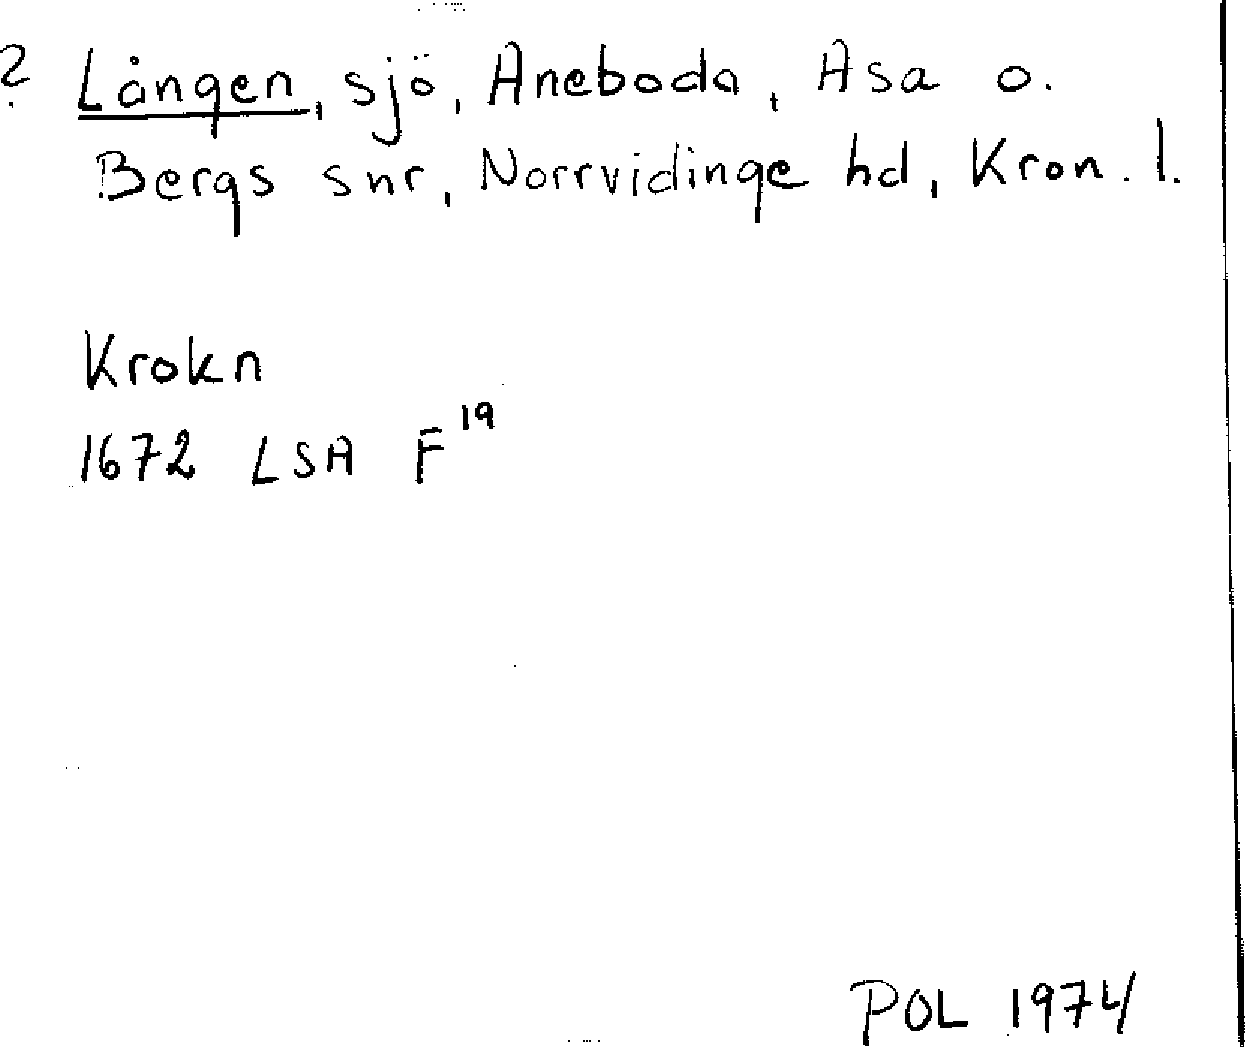 ? Lången, sjö, Aneboda, Asa o.
Bergs snr, Norrvidinge hd, Kron. l.
Krokn
1672 LSA F¹⁹
POL 1974